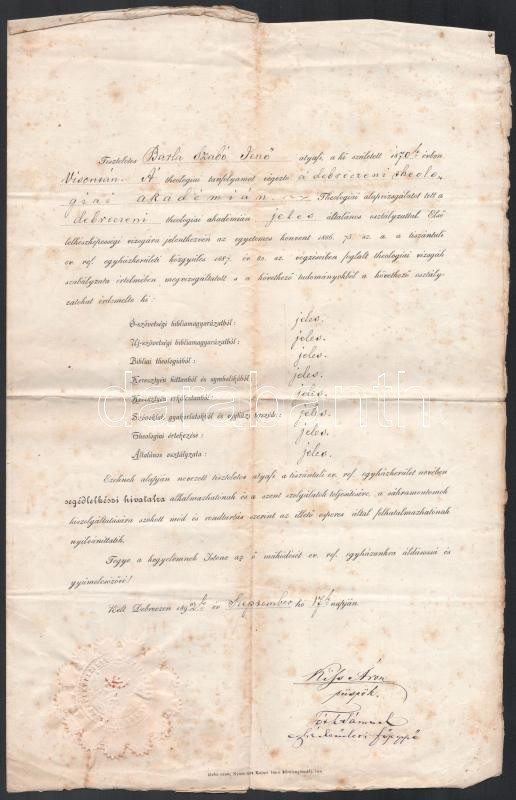 Tiszteletes Barla Szabó Jenő atyafi, a ki született 1870ik évben
Visontán. A theologiai tanfolyamot végezte a debreczeni theolo-
giai akadémián. Theologiai alapvizsgálatot tett a
debreczeni theologiai akadémián jeles általános osztályzattal. Első
lelkészképességi vizsgára jelentkezvén az egyetemes konvent 1886. 73. sz. a. a tiszántúli
ev. ref. egyházkerületi közgyűlés 1887. év sz. végzéseiben foglalt theologiai vizsgák
szabályzata értelmében megvizsgáltatott s a következő tudományokból a következő osztály-
zatokat érdemelte ki:
Ó-szövetségi bibliamagyarázatból: jeles.
Új-szövetségi bibliamagyarázatból: jeles.
Bibliai theologiából: jeles.
Keresztyén hittanból és symbolikából: jeles.
Keresztyén erkölcstanból: jeles.
Szónoklat, gyakorlatokból és egyházi beszéde: jeles.
Theologiai értekezése: jeles.
Általános osztályzata: jeles.
Ezeknek alapján nevezett tiszteletes atyafi a tiszántúli ev. ref. egyházkerület nevében
segédlelkészi hivatalra alkalmazhatónak és a szent szolgálatok teljesítésére, a sákramentomok
kiszolgáltatására szokott mód és rendtartás szerint az illető esperes által felhatalmazhatónak
nyilváníttatik.
Tegye a kegyelemnek Istene az ő működését ev. ref. egyházunkra áldásossá és
gyümölcsözővé!
Kelt Debreczen 1892ik év Szeptember hó 17ik napján.
Kiss Áron
püspök.
főjegyző
darabanth